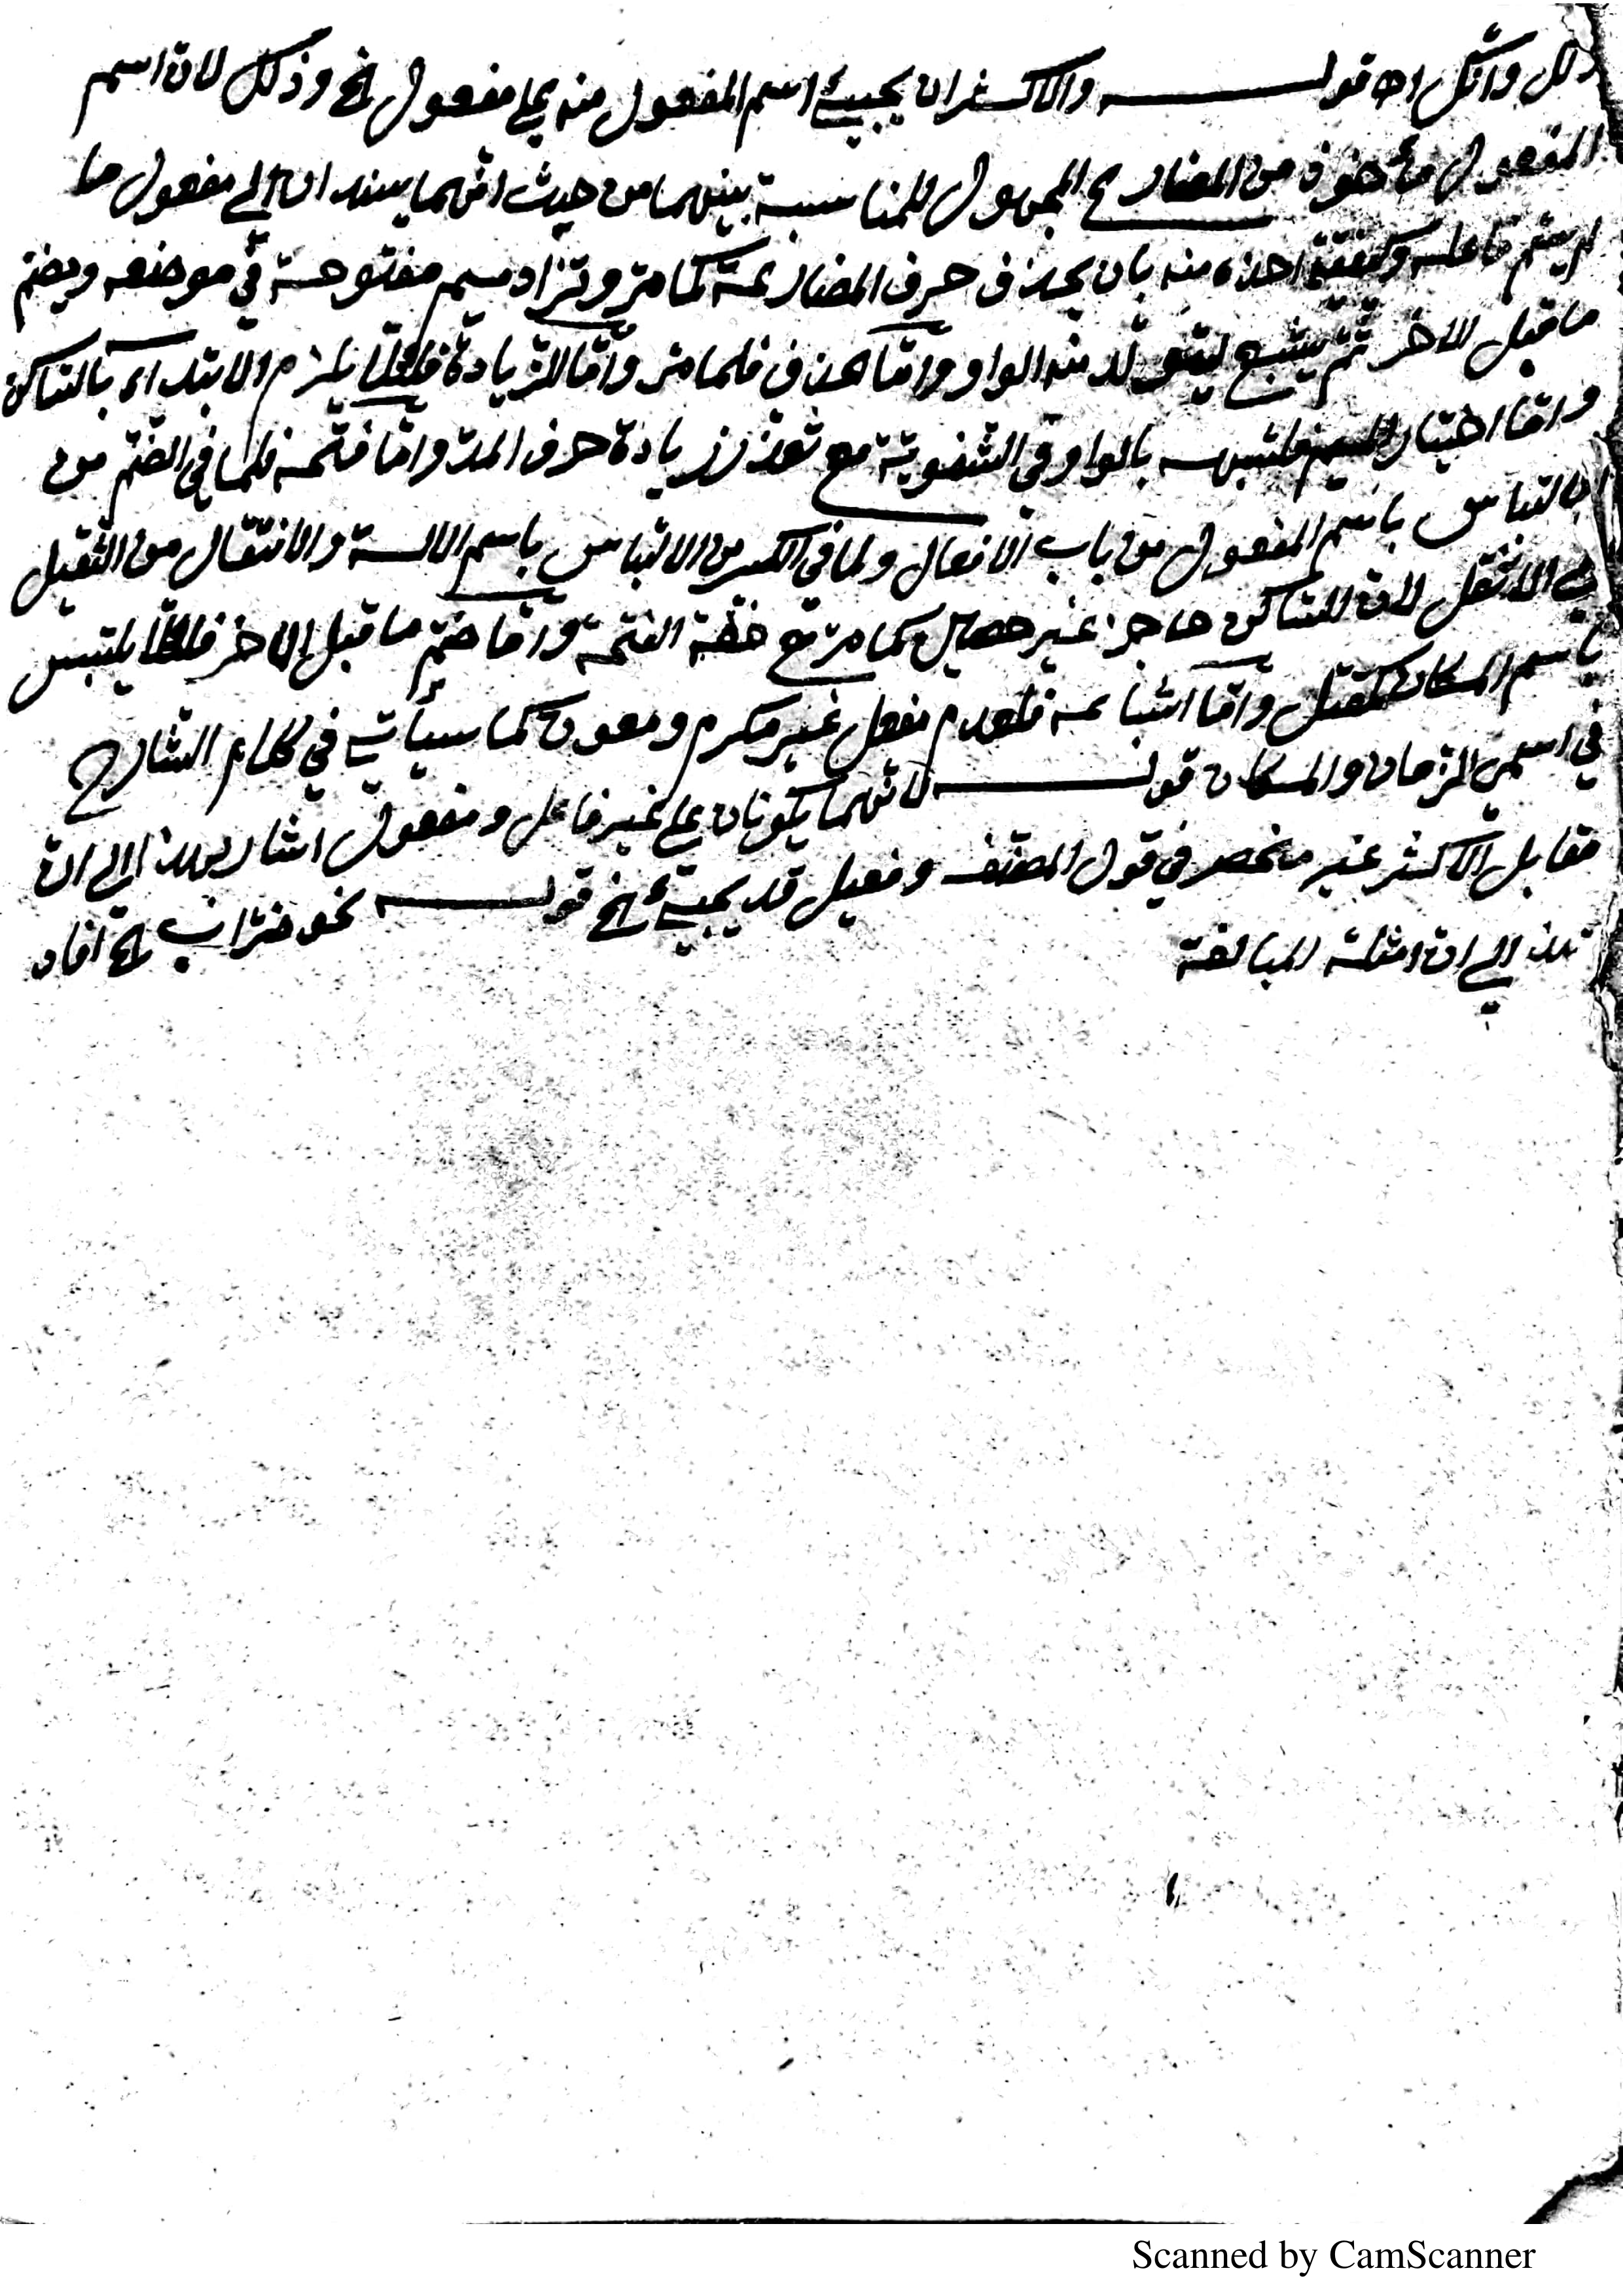 وآكل اه قوله والاكثر ان يجيئ اسم المفعول منه على مفعول الخ وذلك لان اسم
المفعول مأخوذ من المضارع المجهول للمناسبة بينهما من حيث انهما يسندان الي مفعول ما
لم يسم فاعله وكيفية اخذه منه بان يحذف حرف المضارعة كما مر وتزاد ميم مفتوحة في موضعه ويضم
ما قبل الاخر ثم يشبع ليتولد منه الواو واما الحذف فلما مر واما الزيادة فلئلا يلزم الابتداء بالساكن
واما اختيار الميم فلشبهه بالواو في الشفوية مع تعذر زيادة حرف المد واما فتحه فلما في الضم من
الالتباس باسم المفعول من باب الافعال ولما في الكسر من الالتباس باسم الالة والانتقال من الثقيل
الي الاثقل لان الساكن حاجز غير حصين كما مر مع خفة الفتحة واما ضم ما قبل الاخر فلئلا يلتبس
باسم المكان كمقتل واما اشباعه فلعدم مفعل غير مكرم ومعون كما سيأتي في كلام الشارح
في اسمي الزمان والمكان قوله لانهما يكونان على غير فاعل ومفعول اشار بهذا الي ان
مقابل الاكثر غير منحصر في قول المصنف وفعيل قد يجيئ الخ قوله نحو ضراب الخ افاد
بهذا الي ان امثلة المبالغة
Scanned by CamScanner